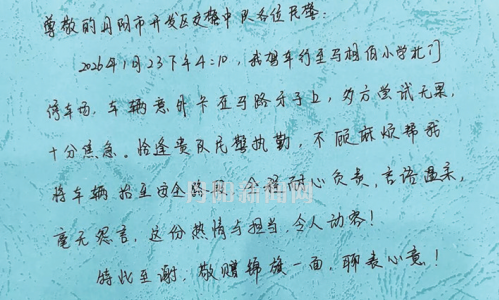 尊敬的丹阳市开发区交警中队各位民警:
2026年1月23下午4:10,我驾车行至马相伯小学北门
停车场,车辆意外卡在马路牙子上,多方尝试无果,
十分焦急。恰逢贵队民警执勤,不顾麻烦帮我
将车辆抬至安全路段,全程耐心负责,言语温柔,
毫无怨言,这份热情与担当,令人动容!
特此至谢,敬赠锦旗一面,聊表心意!
丹阳新闻网